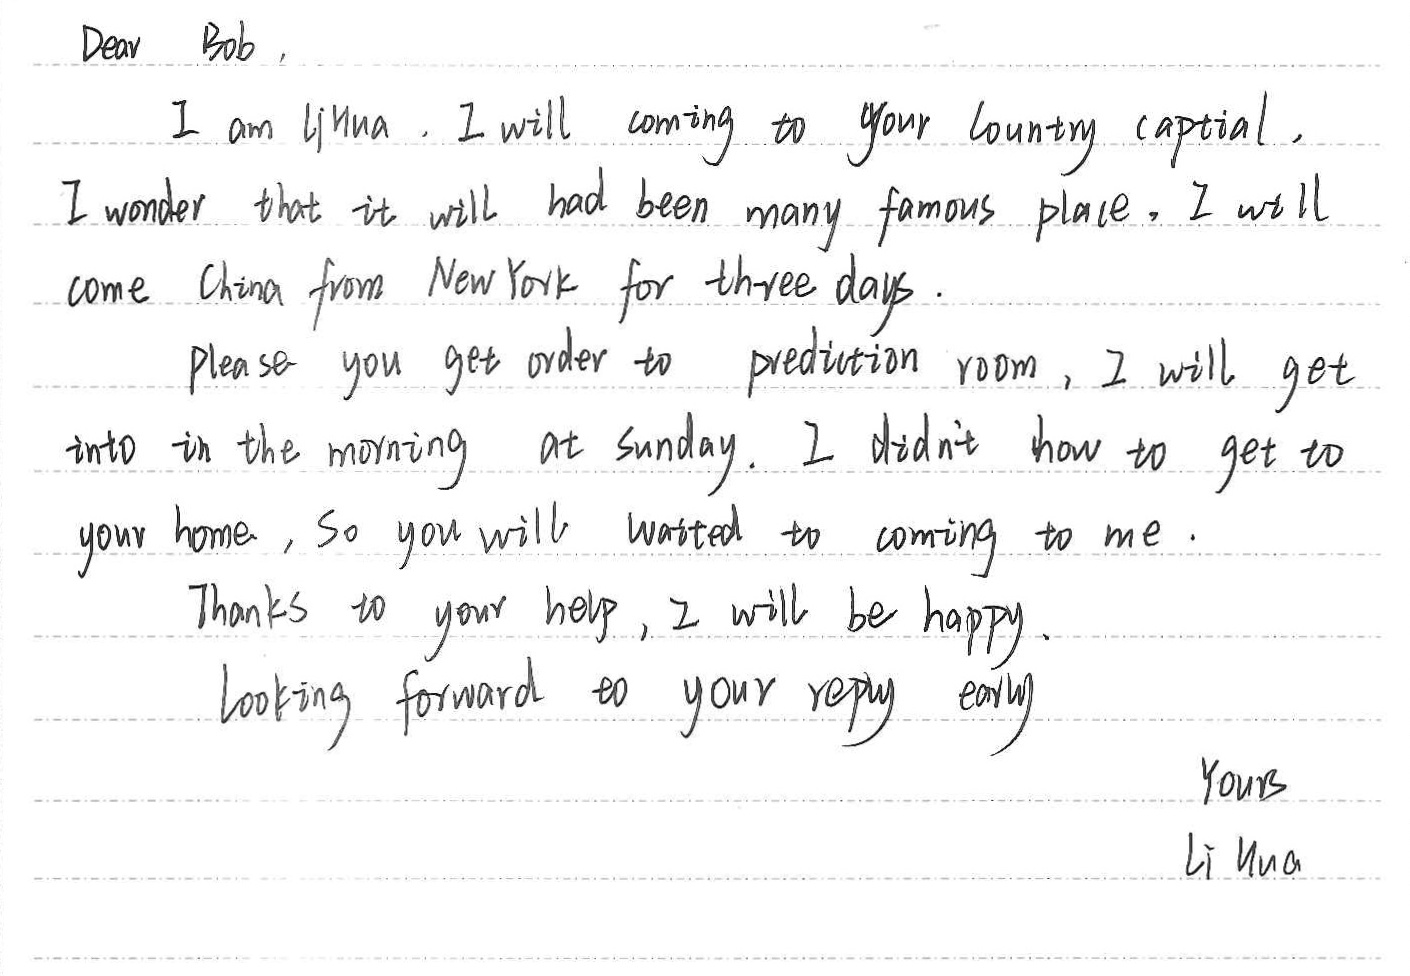 Dear Bob,
I am Li Hua. I will coming to your country captial.
I wonder that it will had been many famous place. I will
come China from New York for three days.
please you get order to prediction room, I will get
into in the morning at sunday. I didn't how to get to
your home, so you will waited to coming to me.
Thanks to your help, I will be happy.
Looking forward to your reply early
Yours
Li Hua